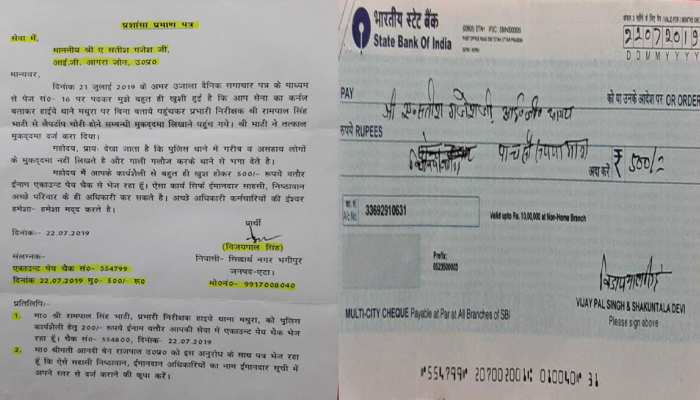 प्रशंसा प्रमाण पत्र
सेवा में,
माननीय श्री ए सतीश गजेश जी,
आई.जी. आगरा जोन, उ०प्र०
मान्यवर,
दिनांक 21 जुलाई 2019 के अमर उजाला दैनिक समाचार पत्र के माध्यम
से पेज सं०- 16 पर पढकर मुझे बहुत ही खुशी हुई है कि आप सेना का कर्नल
बताकर हाईवे थाने मथुरा पर बिना बताये पंहुचकर प्रभारी निरीक्षक श्री रामपाल सिंह
भाटी से लैपटॉप चोरी होने सम्बन्धी मुकदमा लिखाने पहुंच गये। श्री भाटी ने तत्काल
मुकदमा दर्ज करा दिया।
महोदय, प्रायः देखा जाता है कि पुलिस थाने में गरीब व असहाय लोगों
के मुकदमा नहीं लिखते है और गाली गलौज करके थाने से भगा देते है।
महोदय मैं आपके कार्यशैली से बहुत ही खुश होकर 500/- रूपये वतौर
ईनाम एकाउन्ट पेय चैक से भेज रहा हूँ। ऐसा कार्य सिर्फ ईमानदार साहसी, निष्ठावान
अच्छे परिवार के ही अधिकारी कर सकते है। अच्छे अधिकारी कर्मचारियों की ईश्वर
हमेशा- हमेशा मदद करते है।
दिनांक:- 22.07.2019
प्रार्थी
(विजयपाल सिंह)
संलग्नक:-
निवासी- सिद्धार्थ नगर भगीपुर
जनपद-एटा।
एकाउन्ट पेय चैक सं०- 554799
दिनांक 22.07.2019 मु०- 500/- रू०
मो०नं०- 9917008040
प्रतिलिपि:-
1. मा० श्री रामपाल सिंह भाटी, प्रभारी निरीक्षक हाइवे थाना मथुरा, को पुलिस
कार्यशैली हेतु 200/- रूपये ईनाम वतौर आपकी सेवा में एकाउन्ट पेय चैक भेज
रहा हूँ। चैक सं०- 554800, दिनांक- 22.07.2019
2. मा० श्रीमती आनदी बेन राजपाल उ०प्र० को इस अनुरोध के साथ पत्र भेज रहा
हूं कि ऐसे सहासी निष्ठावान, ईमानदान अधिकारियों का नाम ईमानदार सूची में
अपने स्तर से दर्ज कराने की कृपा करें।
भारतीय स्टेट बैंक
State Bank Of India
22072019
D D M M Y Y Y Y
PAY
को या उनके आदेश पर OR ORDER
रुपये RUPEES
पाच सौ रूपया मात्र
अदा करें ₹ 500/-
A/c No.
33692910631
Valid upto Rs. 10,00,000 at Non-Home Branch
Prefix:
0523500003
VIJAY PAL SINGH & SHAKUNTALA DEVI
Please sign above
MULTI-CITY CHEQUE Payable at Par at All Branches of SBI
⑈554799⑈ 207002001⑆ 010040⑈ 31